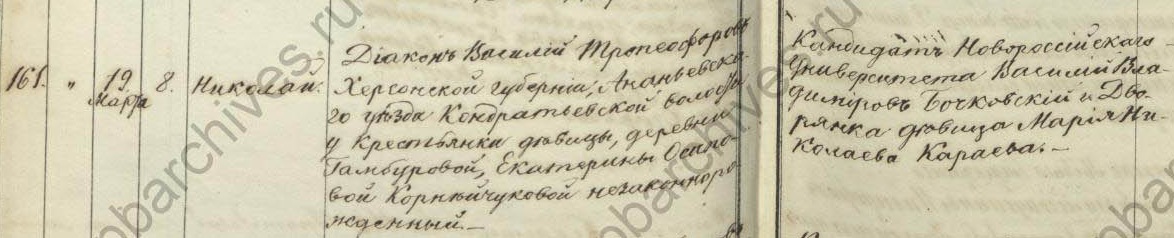 161. " 19 Марта 8. Николай.
Діаконъ Василій Тропеофоровъ
Херсонской губерніи, Ананьевска-
го уѣзда Кондратьевской волости
у Крестьянки дѣвицы, деревни
Гамбуровой, Екатерины Осипо-
вой Корнѣйчуковой незаконноро-
жденный.—
Кандидатъ Новороссійскаго
Университета Василій Вла-
диміровъ Бочковскій и Дво-
рянка дѣвица Марія Ни-
колаева Караева.—
obarchives.ru
obarchives.ru